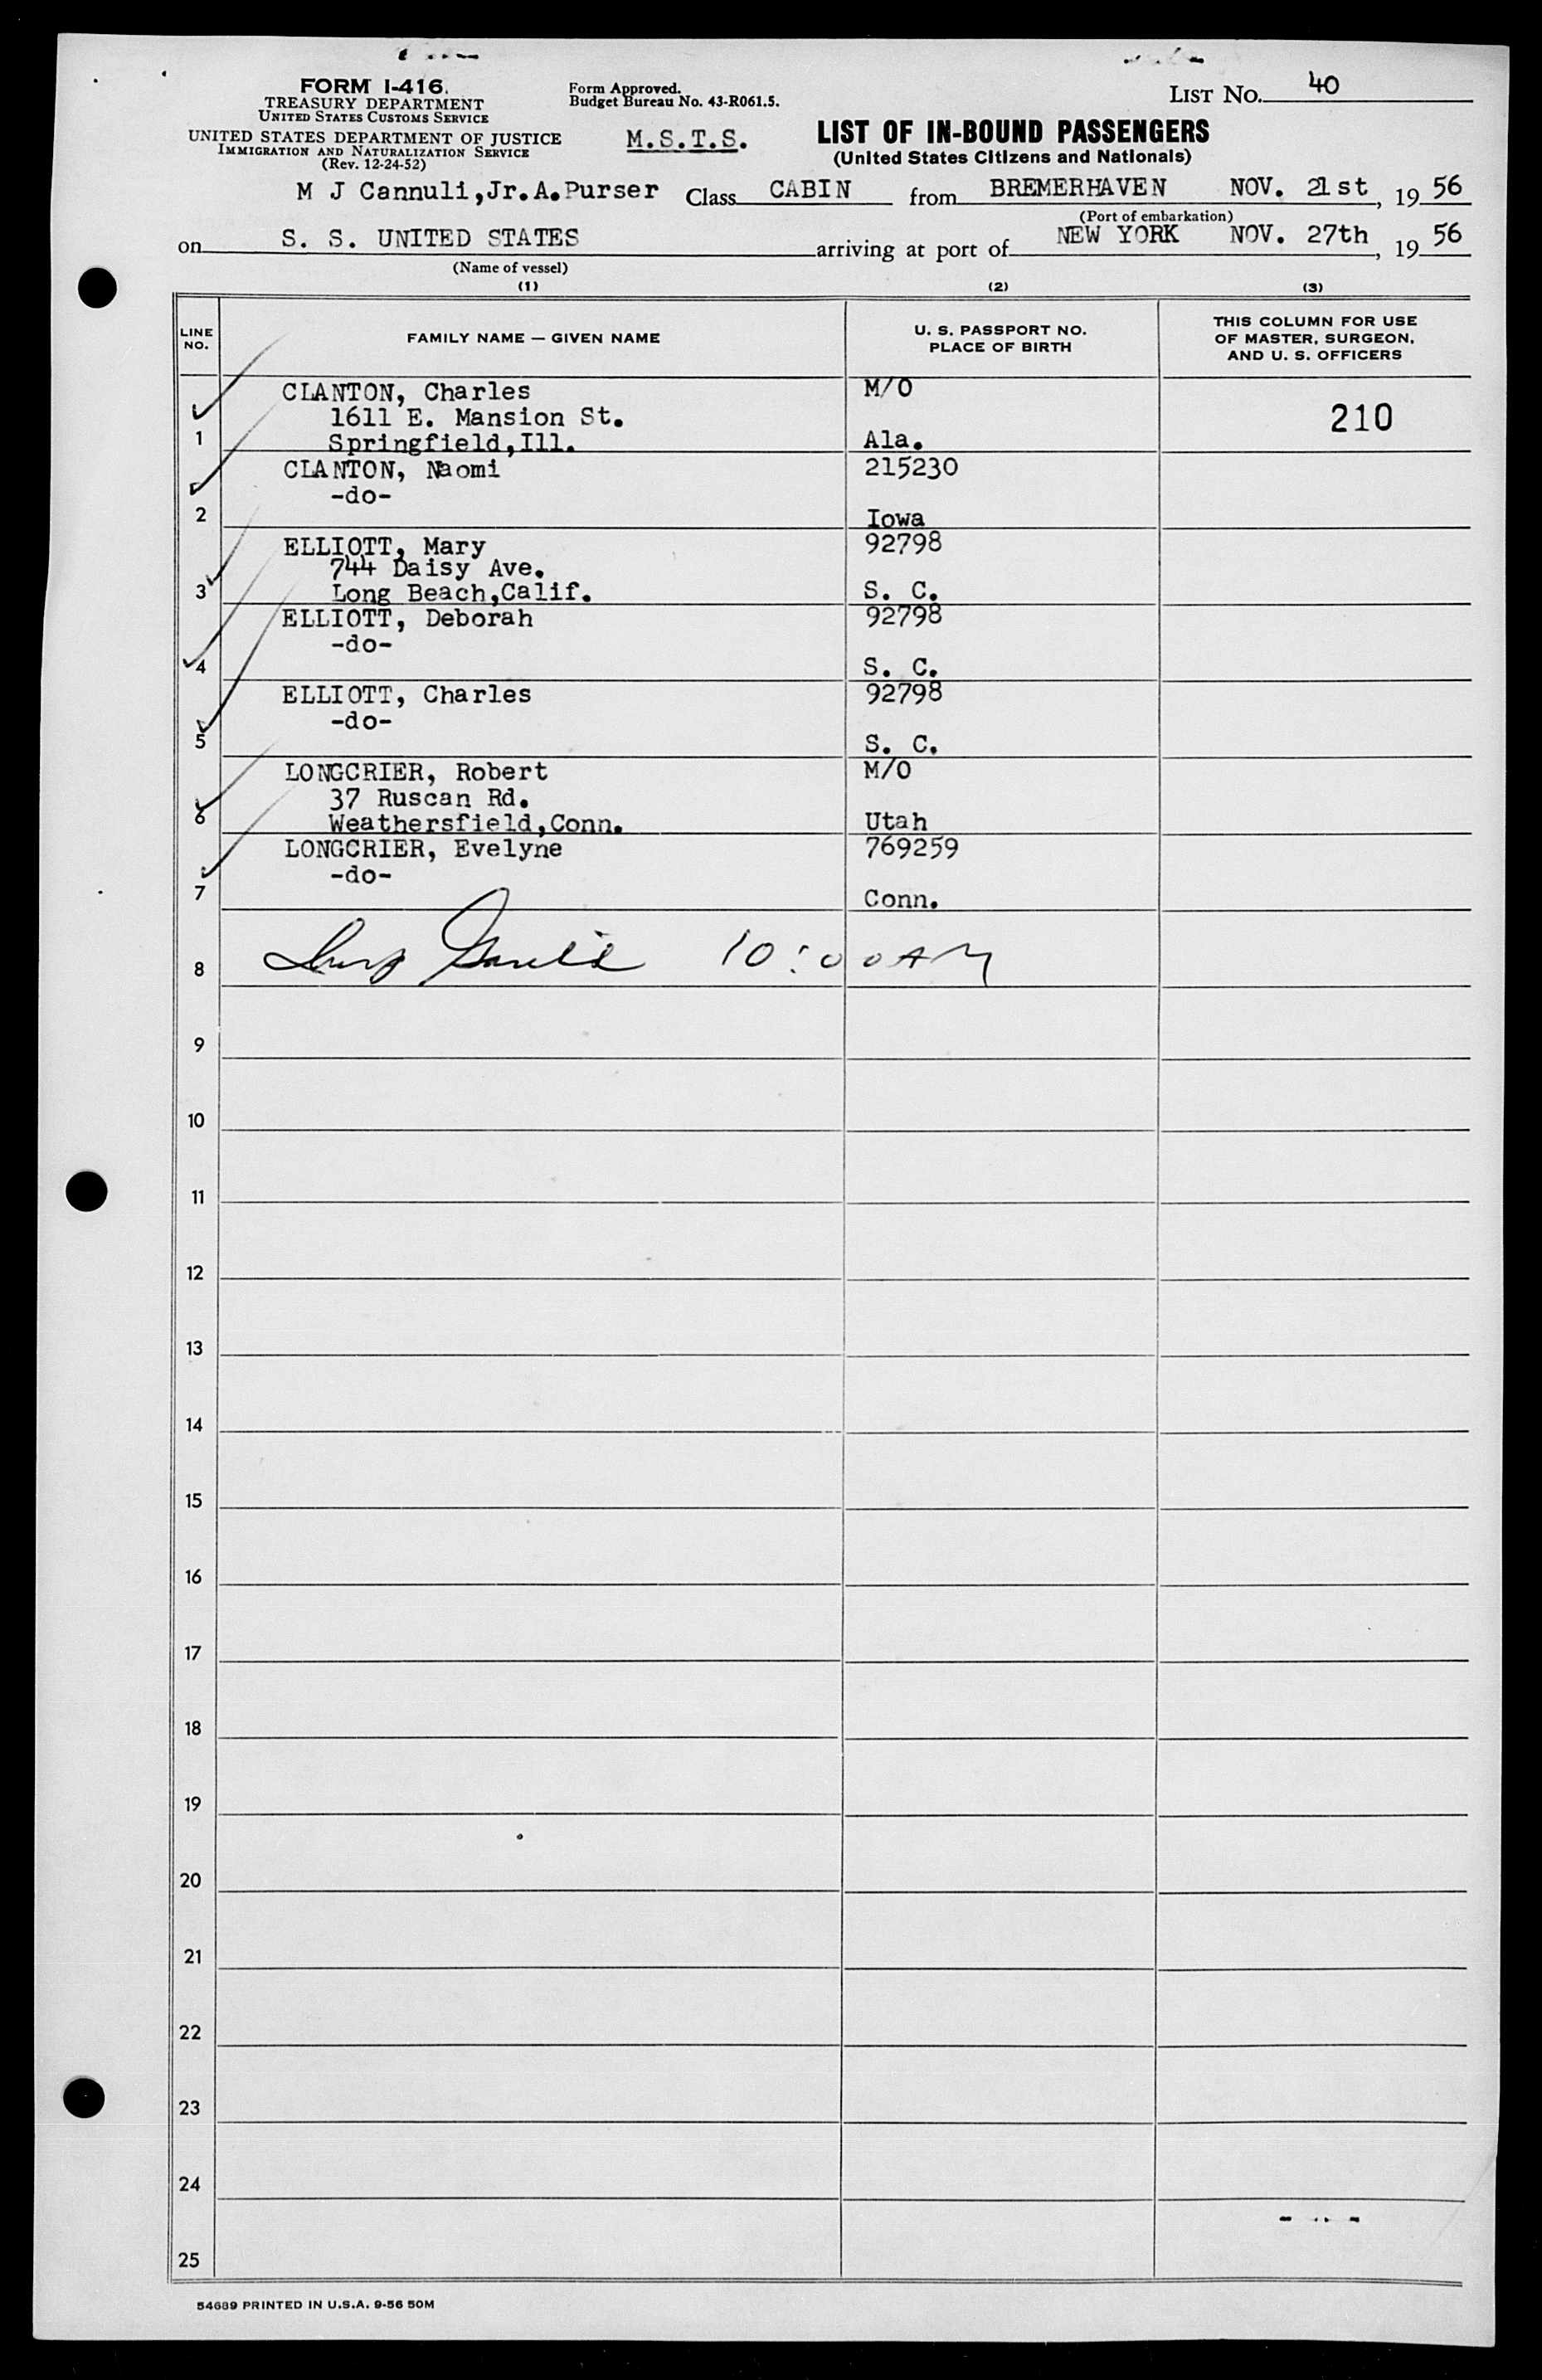 FORM I-416.
TREASURY DEPARTMENT
UNITED STATES CUSTOMS SERVICE
UNITED STATES DEPARTMENT OF JUSTICE
IMMIGRATION AND NATURALIZATION SERVICE
(Rev. 12-24-52)
Form Approved.
Budget Bureau No. 43-R061.5.
M.S.T.S.
LIST No. 40
LIST OF IN-BOUND PASSENGERS
(United States Citizens and Nationals)
M J Cannuli,Jr.A.Purser Class CABIN from BREMERHAVEN NOV. 21st, 19 56
(Port of embarkation)
on S. S. UNITED STATES arriving at port of NEW YORK NOV. 27th, 19 56
(Name of vessel)
(1) (2) (3)
LINE NO.
FAMILY NAME — GIVEN NAME
U. S. PASSPORT NO.
PLACE OF BIRTH
THIS COLUMN FOR USE
OF MASTER, SURGEON,
AND U. S. OFFICERS
CLANTON, Charles M/O
1611 E. Mansion St. 210
1 Springfield,Ill. Ala.
CLANTON, Naomi 215230
-do-
2 Iowa
ELLIOTT, Mary 92798
744 Daisy Ave.
3 Long Beach,Calif. S. C.
ELLIOTT, Deborah 92798
-do-
4 S. C.
ELLIOTT, Charles 92798
-do-
5 S. C.
LONGCRIER, Robert M/O
37 Ruscan Rd.
6 Weathersfield,Conn. Utah
LONGCRIER, Evelyne 769259
-do-
7 Conn.
8 10:00 AM
9
10
11
12
13
14
15
16
17
18
19
20
21
22
23
24
25
54689 PRINTED IN U.S.A. 9-56 50M